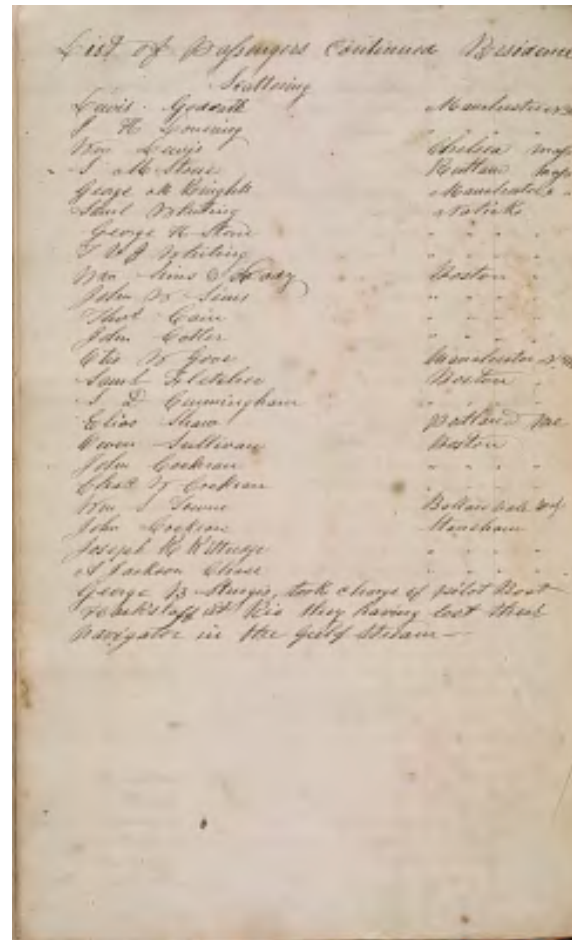 List of Passengers Continued Residence
Scattering
Lewis
J H " " " "
Wm Lewis Chelsea Mass
S M Stone Rutland Mass
George M Knights Manchester
Saml Whiting Natick
George H Stone " " " "
Whiting " " " "
Wm Sims Boston "
John W Sims " " " "
Thos Cain " " " "
John " " " "
Otis W Gove Manchester N H
Saml Fletcher Boston "
S D Cunningham " " " "
Elias Shaw Portland Me
Owen Sullivan Boston
John Cochran " " " "
Chas W Cochran " " " "
Wm S
John Cochran Stoneham
Joseph H Kittredge " " " "
A Jackson " " " "
George B Sturgis, took charge of pilot Boat
at Rio they having lost their
Navigator in the Gulf Stream —